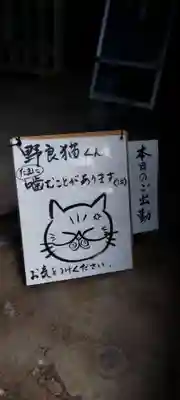 野良猫くん
たまに
噛むことがあります(笑)
お気をつけください。
本日のご出勤